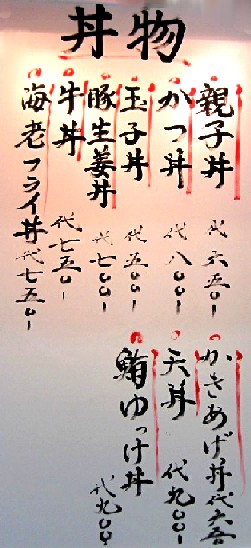 丼物
親子丼 代六五〇ー
かつ丼 代八〇〇ー
玉子丼 代五〇〇ー
豚生姜丼 代七〇〇ー
牛丼 代七五〇ー
海老フライ丼 代七五〇ー
かきあげ丼 代六五〇
天丼 代九〇〇ー
鮪ゆっけ丼 代九〇〇